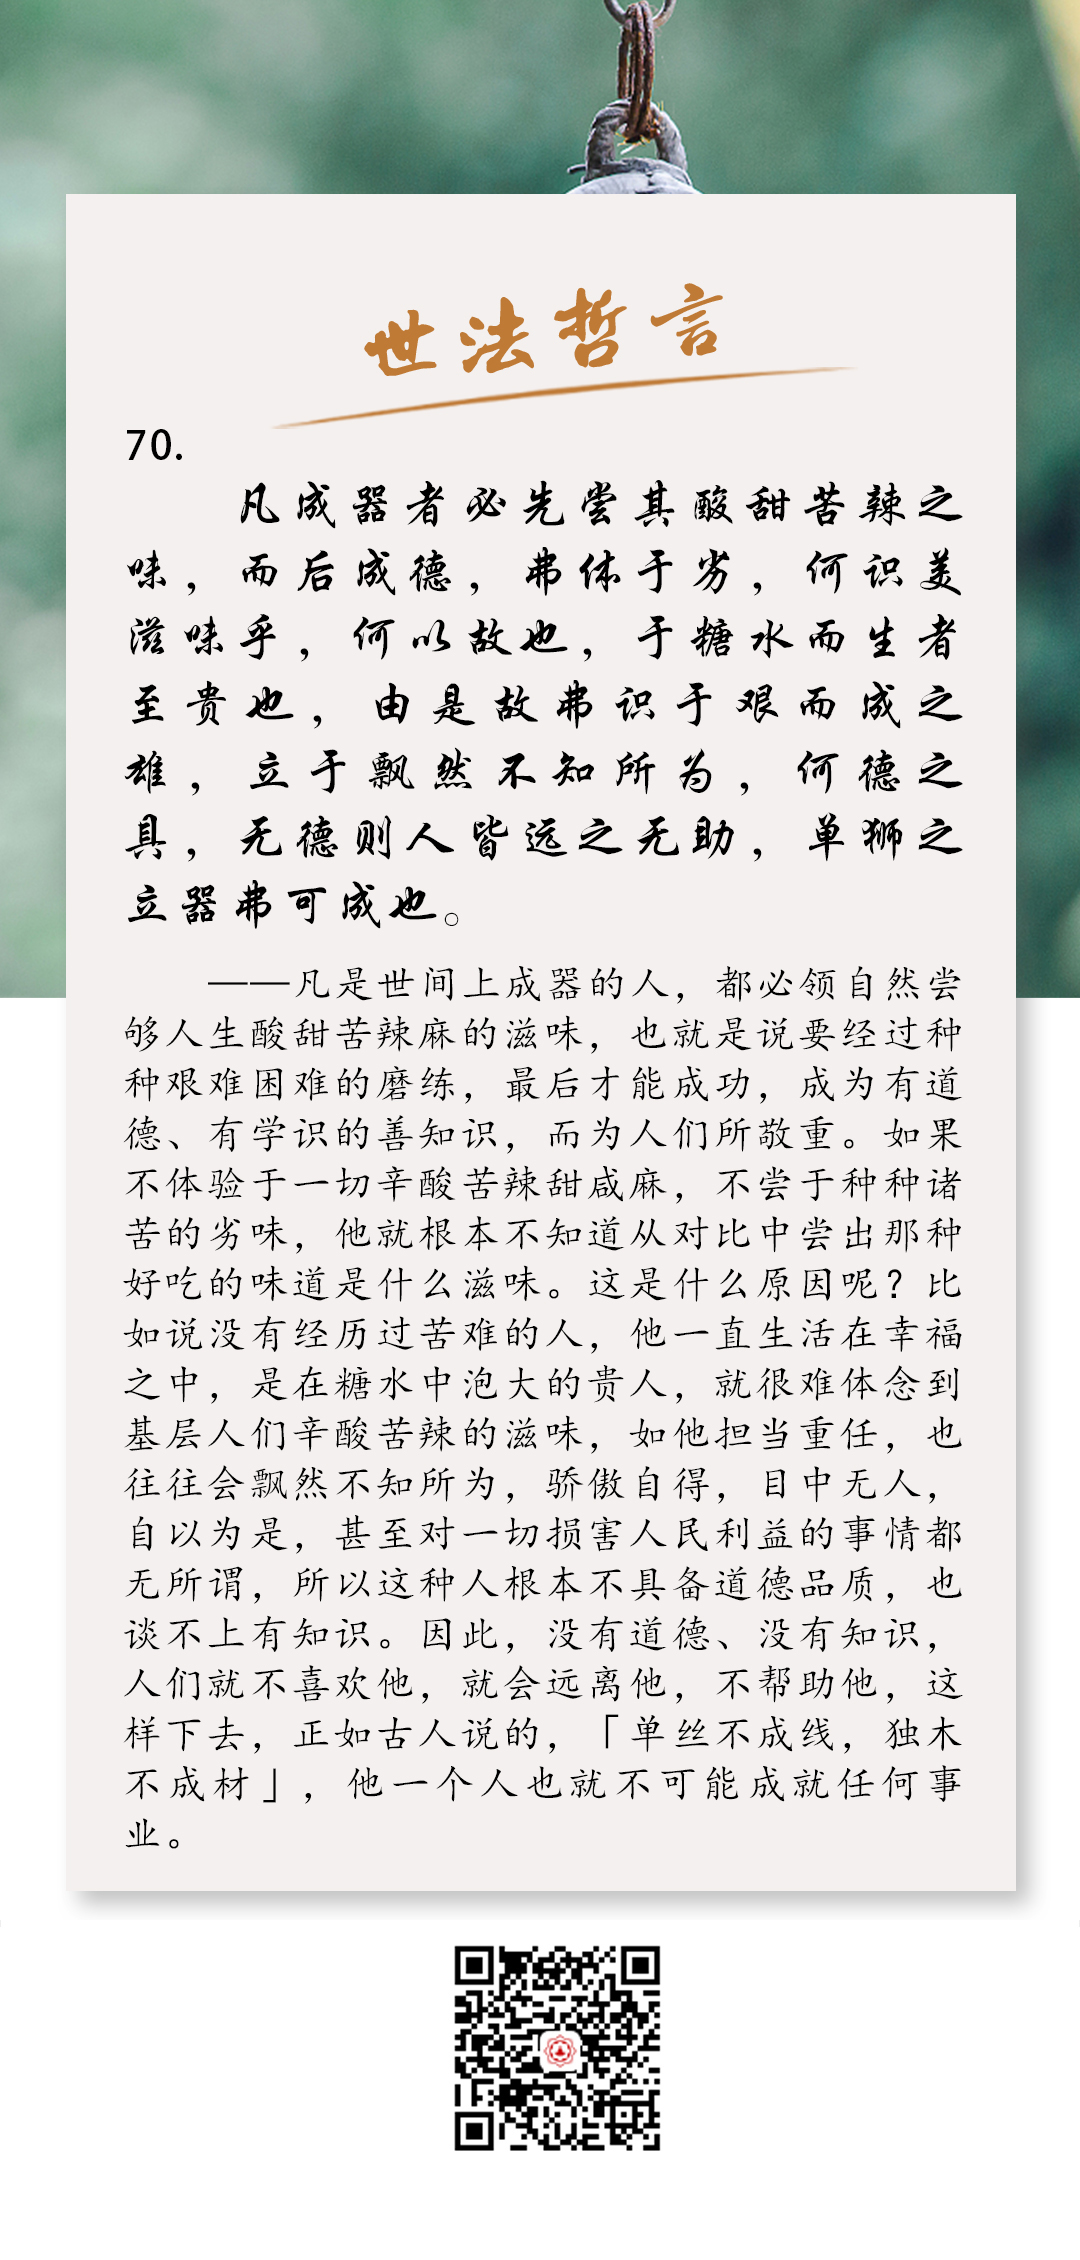 世法哲言
70.
凡成器者必先尝其酸甜苦辣之
味，而后成德，弗体于劣，何识美
滋味乎，何以故也，于糖水而生者
至贵也，由是故弗识于艰而成之
雄，立于飘然不知所为，何德之
具，无德则人皆远之无助，单狮之
立器弗可成也。
——凡是世间上成器的人，都必领自然尝
够人生酸甜苦辣麻的滋味，也就是说要经过种
种艰难困难的磨练，最后才能成功，成为有道
德、有学识的善知识，而为人们所敬重。如果
不体验于一切辛酸苦辣甜咸麻，不尝于种种诸
苦的劣味，他就根本不知道从对比中尝出那种
好吃的味道是什么滋味。这是什么原因呢？比
如说没有经历过苦难的人，他一直生活在幸福
之中，是在糖水中泡大的贵人，就很难体念到
基层人们辛酸苦辣的滋味，如他担当重任，也
往往会飘然不知所为，骄傲自得，目中无人，
自以为是，甚至对一切损害人民利益的事情都
无所谓，所以这种人根本不具备道德品质，也
谈不上有知识。因此，没有道德、没有知识，
人们就不喜欢他，就会远离他，不帮助他，这
样下去，正如古人说的，「单丝不成线，独木
不成材」，他一个人也就不可能成就任何事
业。